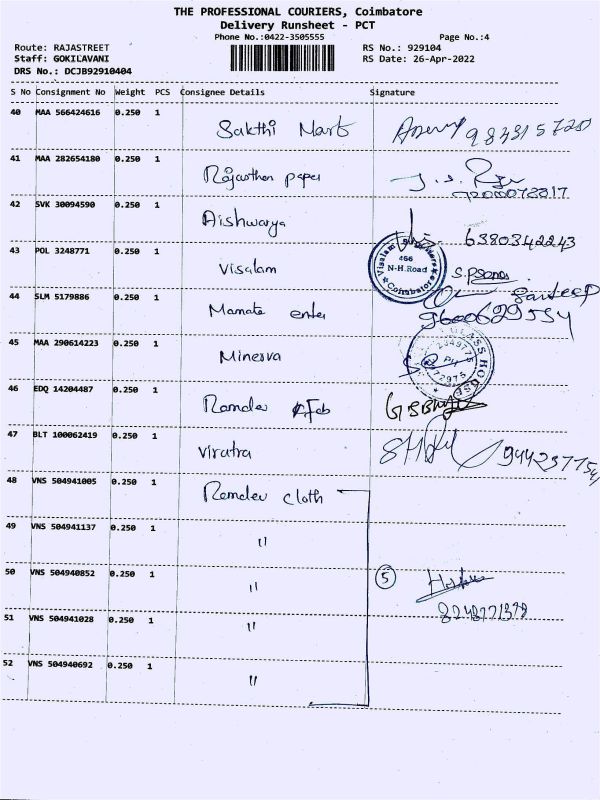 THE PROFESSIONAL COURIERS, Coimbatore
Delivery Runsheet - PCT
Phone No.:0422-3505555
Page No.:4
Route: RAJASTREET
RS No.: 929104
Staff: GOKILAVANI
RS Date: 26-Apr-2022
DRS No.: DCJB92910404
S No Consignment No Weight PCS Consignee Details Signature
40 MAA 566424616 0.250 1 Sakthi Mart
41 MAA 282654180 0.250 1 Rajasthan paper
42 SVK 30094590 0.250 1 Aishwarya 6380342243
43 POL 3248771 0.250 1 Visalam
466
N-H.Road
Coimbatore
44 SLM 5179886 0.250 1 Mamata enter Sandeep
9600629554
45 MAA 290614223 0.250 1 Minerva
46 EDQ 14204487 0.250 1 Ramdev Fab
47 BLT 100062419 0.250 1 Viratra
48 VNS 504941005 0.250 1 Ramdev cloth
49 VNS 504941137 0.250 1 "
50 VNS 504940852 0.250 1 " 5
51 VNS 504941028 0.250 1 "
52 VNS 504940692 0.250 1 "